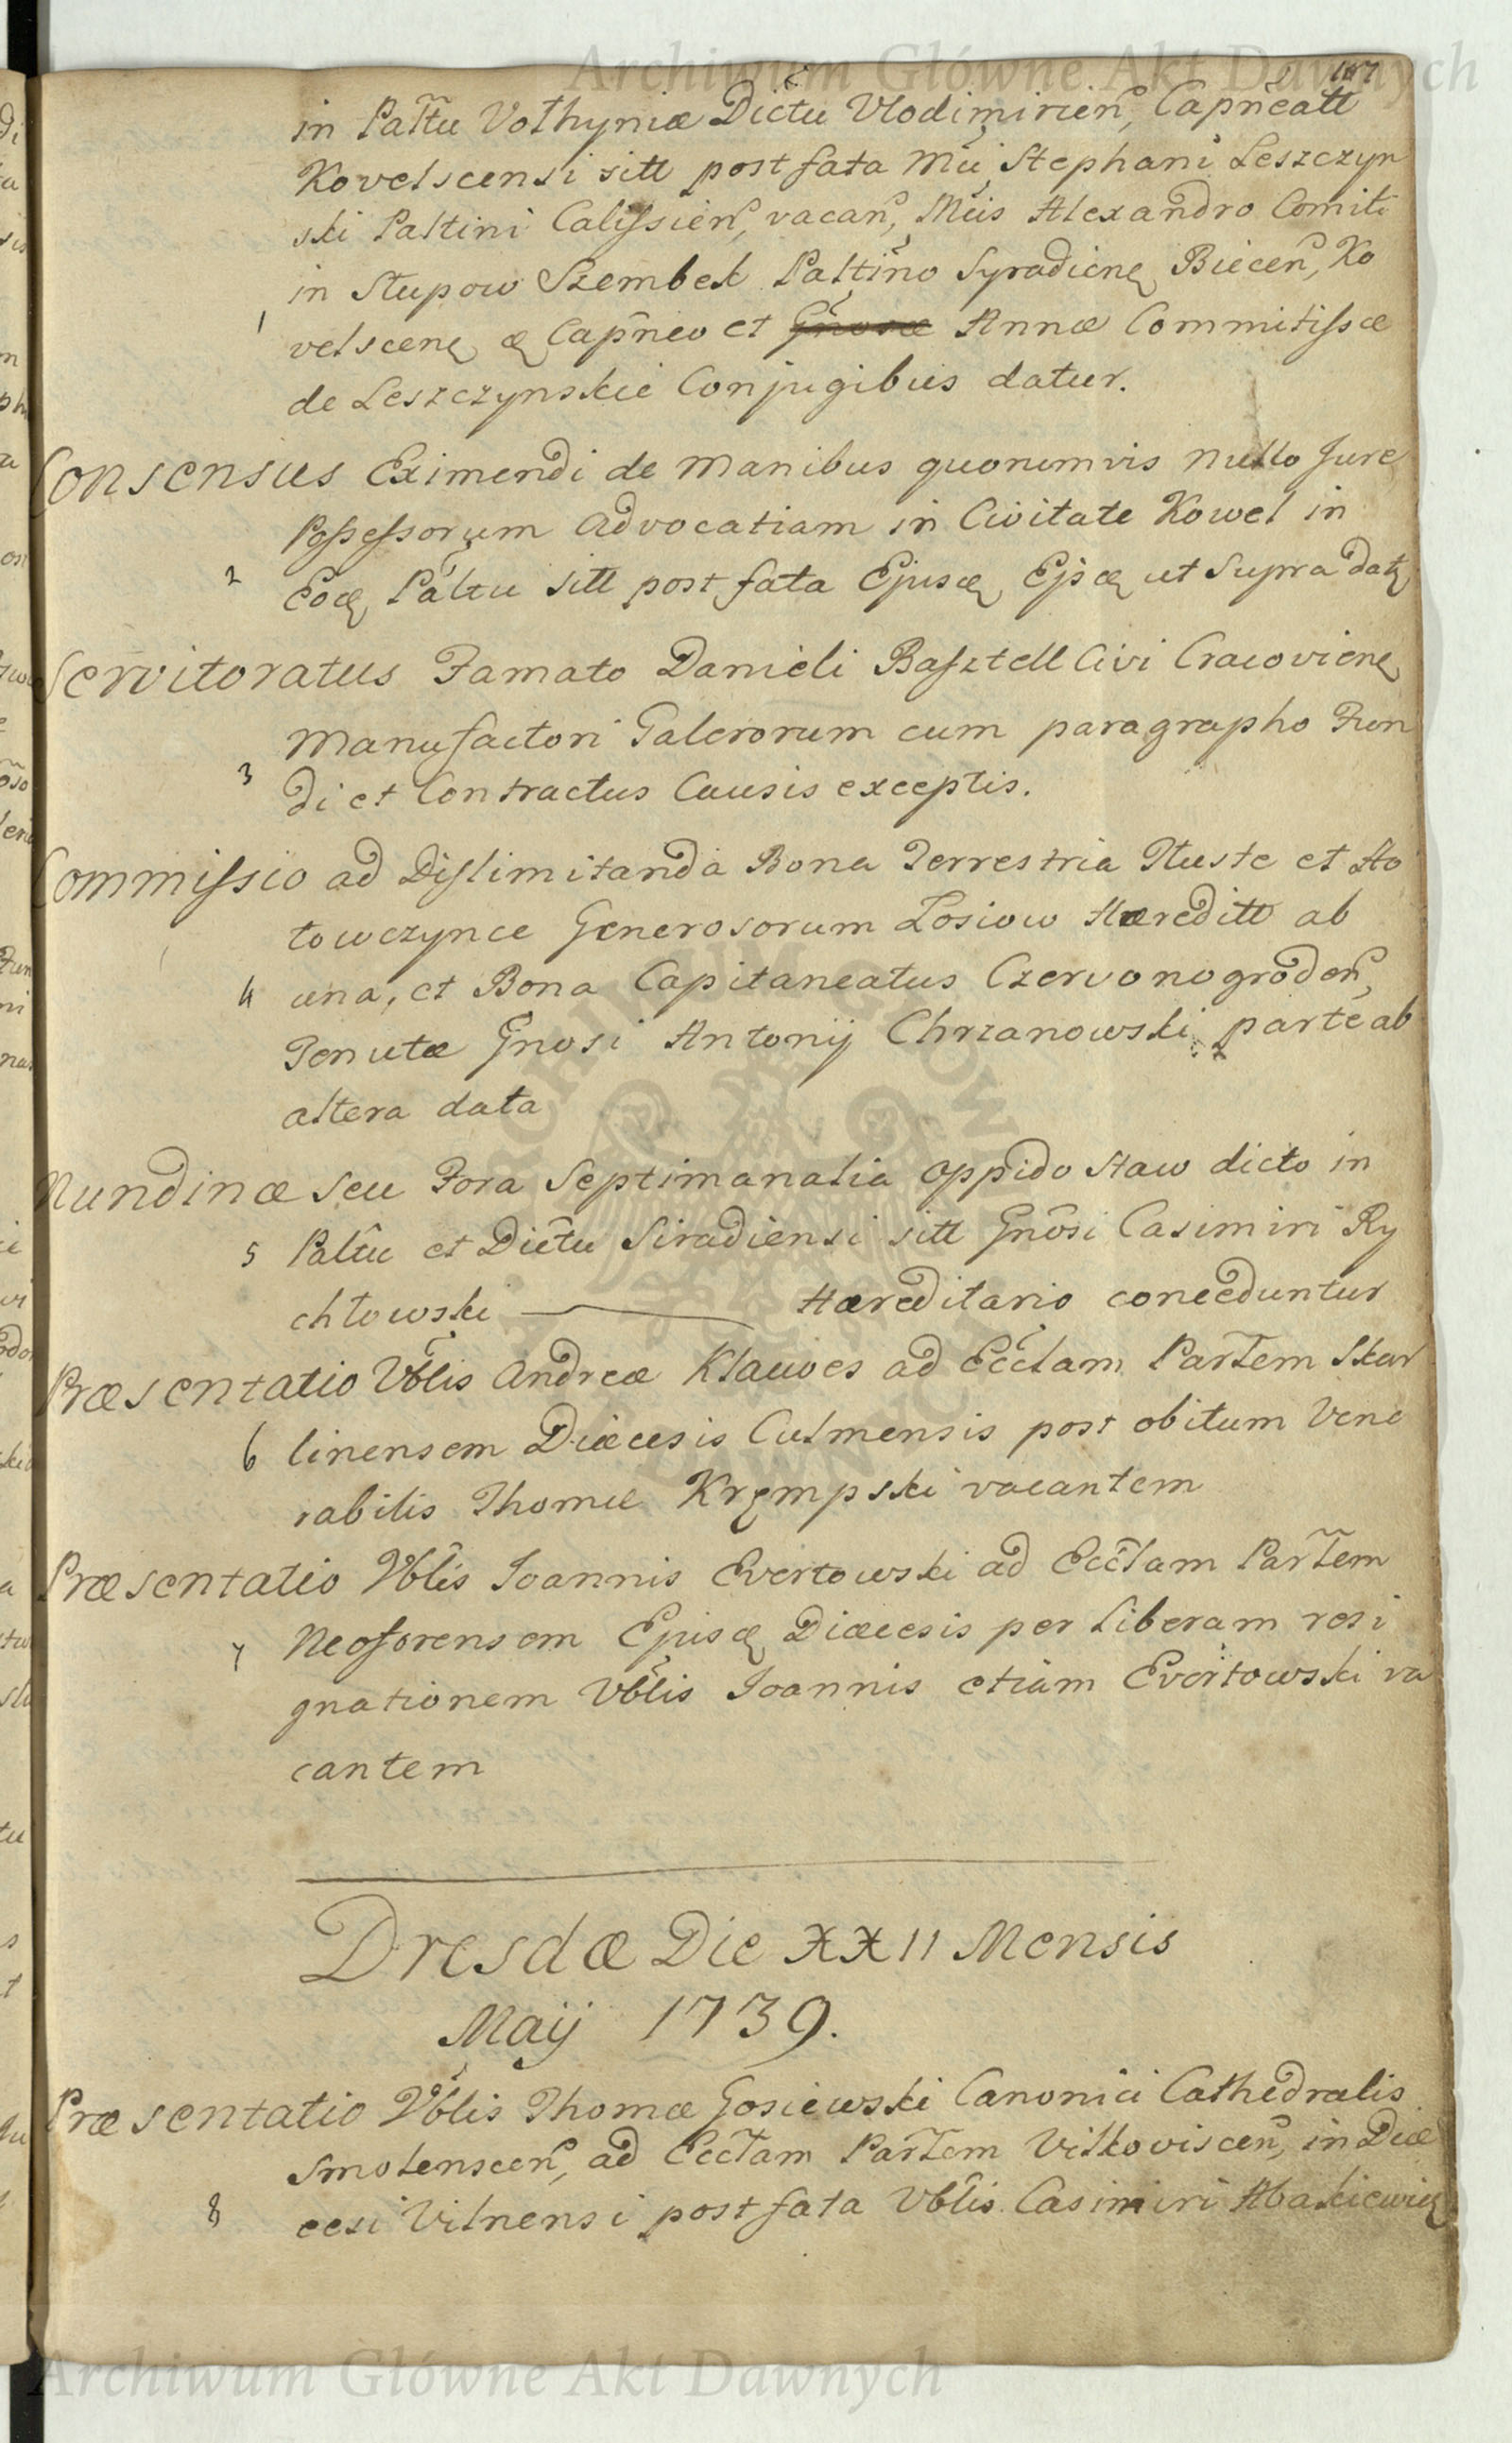 Archiwum Główne Akt Dawnych
107
in Paltu Volhyniæ Dictu Vlodimirien, Capneatt
Kovelscensi sitt post fata Mci Stephani Leszczyn
ski Paltini Calissien, vacan, Mcis Alexandro Comiti
in Słupow Szembek Paltino Syradienq Biecen, Ko
1 velscenq æ Capneo et Gnosæ Annæ Commitissæ
de Leszczynskie Conjugibus datur.
Consensus Eximendi de manibus quorumvis nullo Jure
Possessorum Advocatiam in Civitate Kowel in
2 Eoq Paltu sitt post fata Ejusq Ejsq ut supra datq
Servitoratus Famato Danieli Basztell Civi Cracovienq
manufactori Galerorum cum paragrapho Fun
3 di et Contractus Causis exceptis.
Commissio ad Dislimitanda Bona Terrestria Tłuste et Ho
łowczynce Generosorum Łosiow Hæreditt ab
4 una, et Bona Capitaneatus Czervonogroden,
Tenutæ Gnosi Antonij Chrzanowski parte ab
altera data
Nundinæ seu Fora Septimanalia oppido Staw dicto in
5 Paltu et Dictu Siradiensi sitt Gnosi Casimiri Ry
chłowski Hæreditario conceduntur
Præsentatio Vblis Andreæ Klawes ad Ecclam Parlem Skar
6 linensem Diæcesis Culmensis post obitum Vene
rabilis Thomæ Krępski vacantem
Præsentatio Vblis Joannis Evertowski ad Ecclam Parlem
7 Neoforensem Ejusq Diæcesis per Liberam resi
gnationem Vblis Joannis etiam Evertowski va
cantem
Dresdæ Die XXII Mensis
Maij 1739.
Præsentatio Vblis Thomæ Gosiewski Canonici Cathedralis
Smolenscen, ad Ecclam Parlem Vilkoviscen, in Diæ
8 cesi Vilnensi post fata Vblis Casimiri Abakiewicz
Archiwum Główne Akt Dawnych